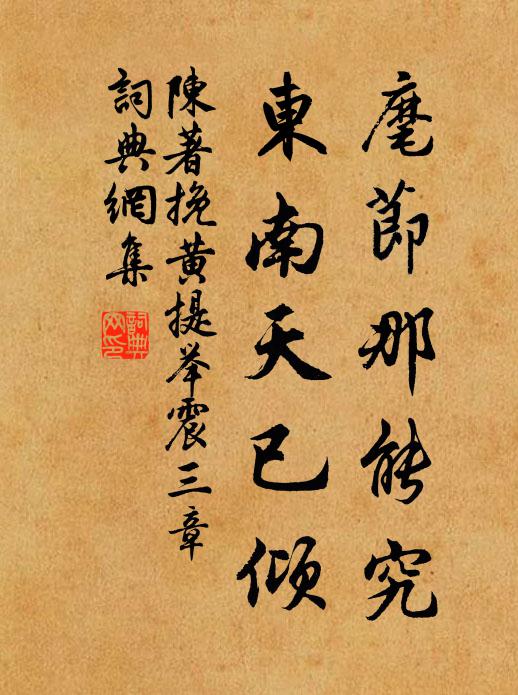 麾節那能究
東南天已傾
陳著挽黃提举震三章
詞典網集
詞典
网印